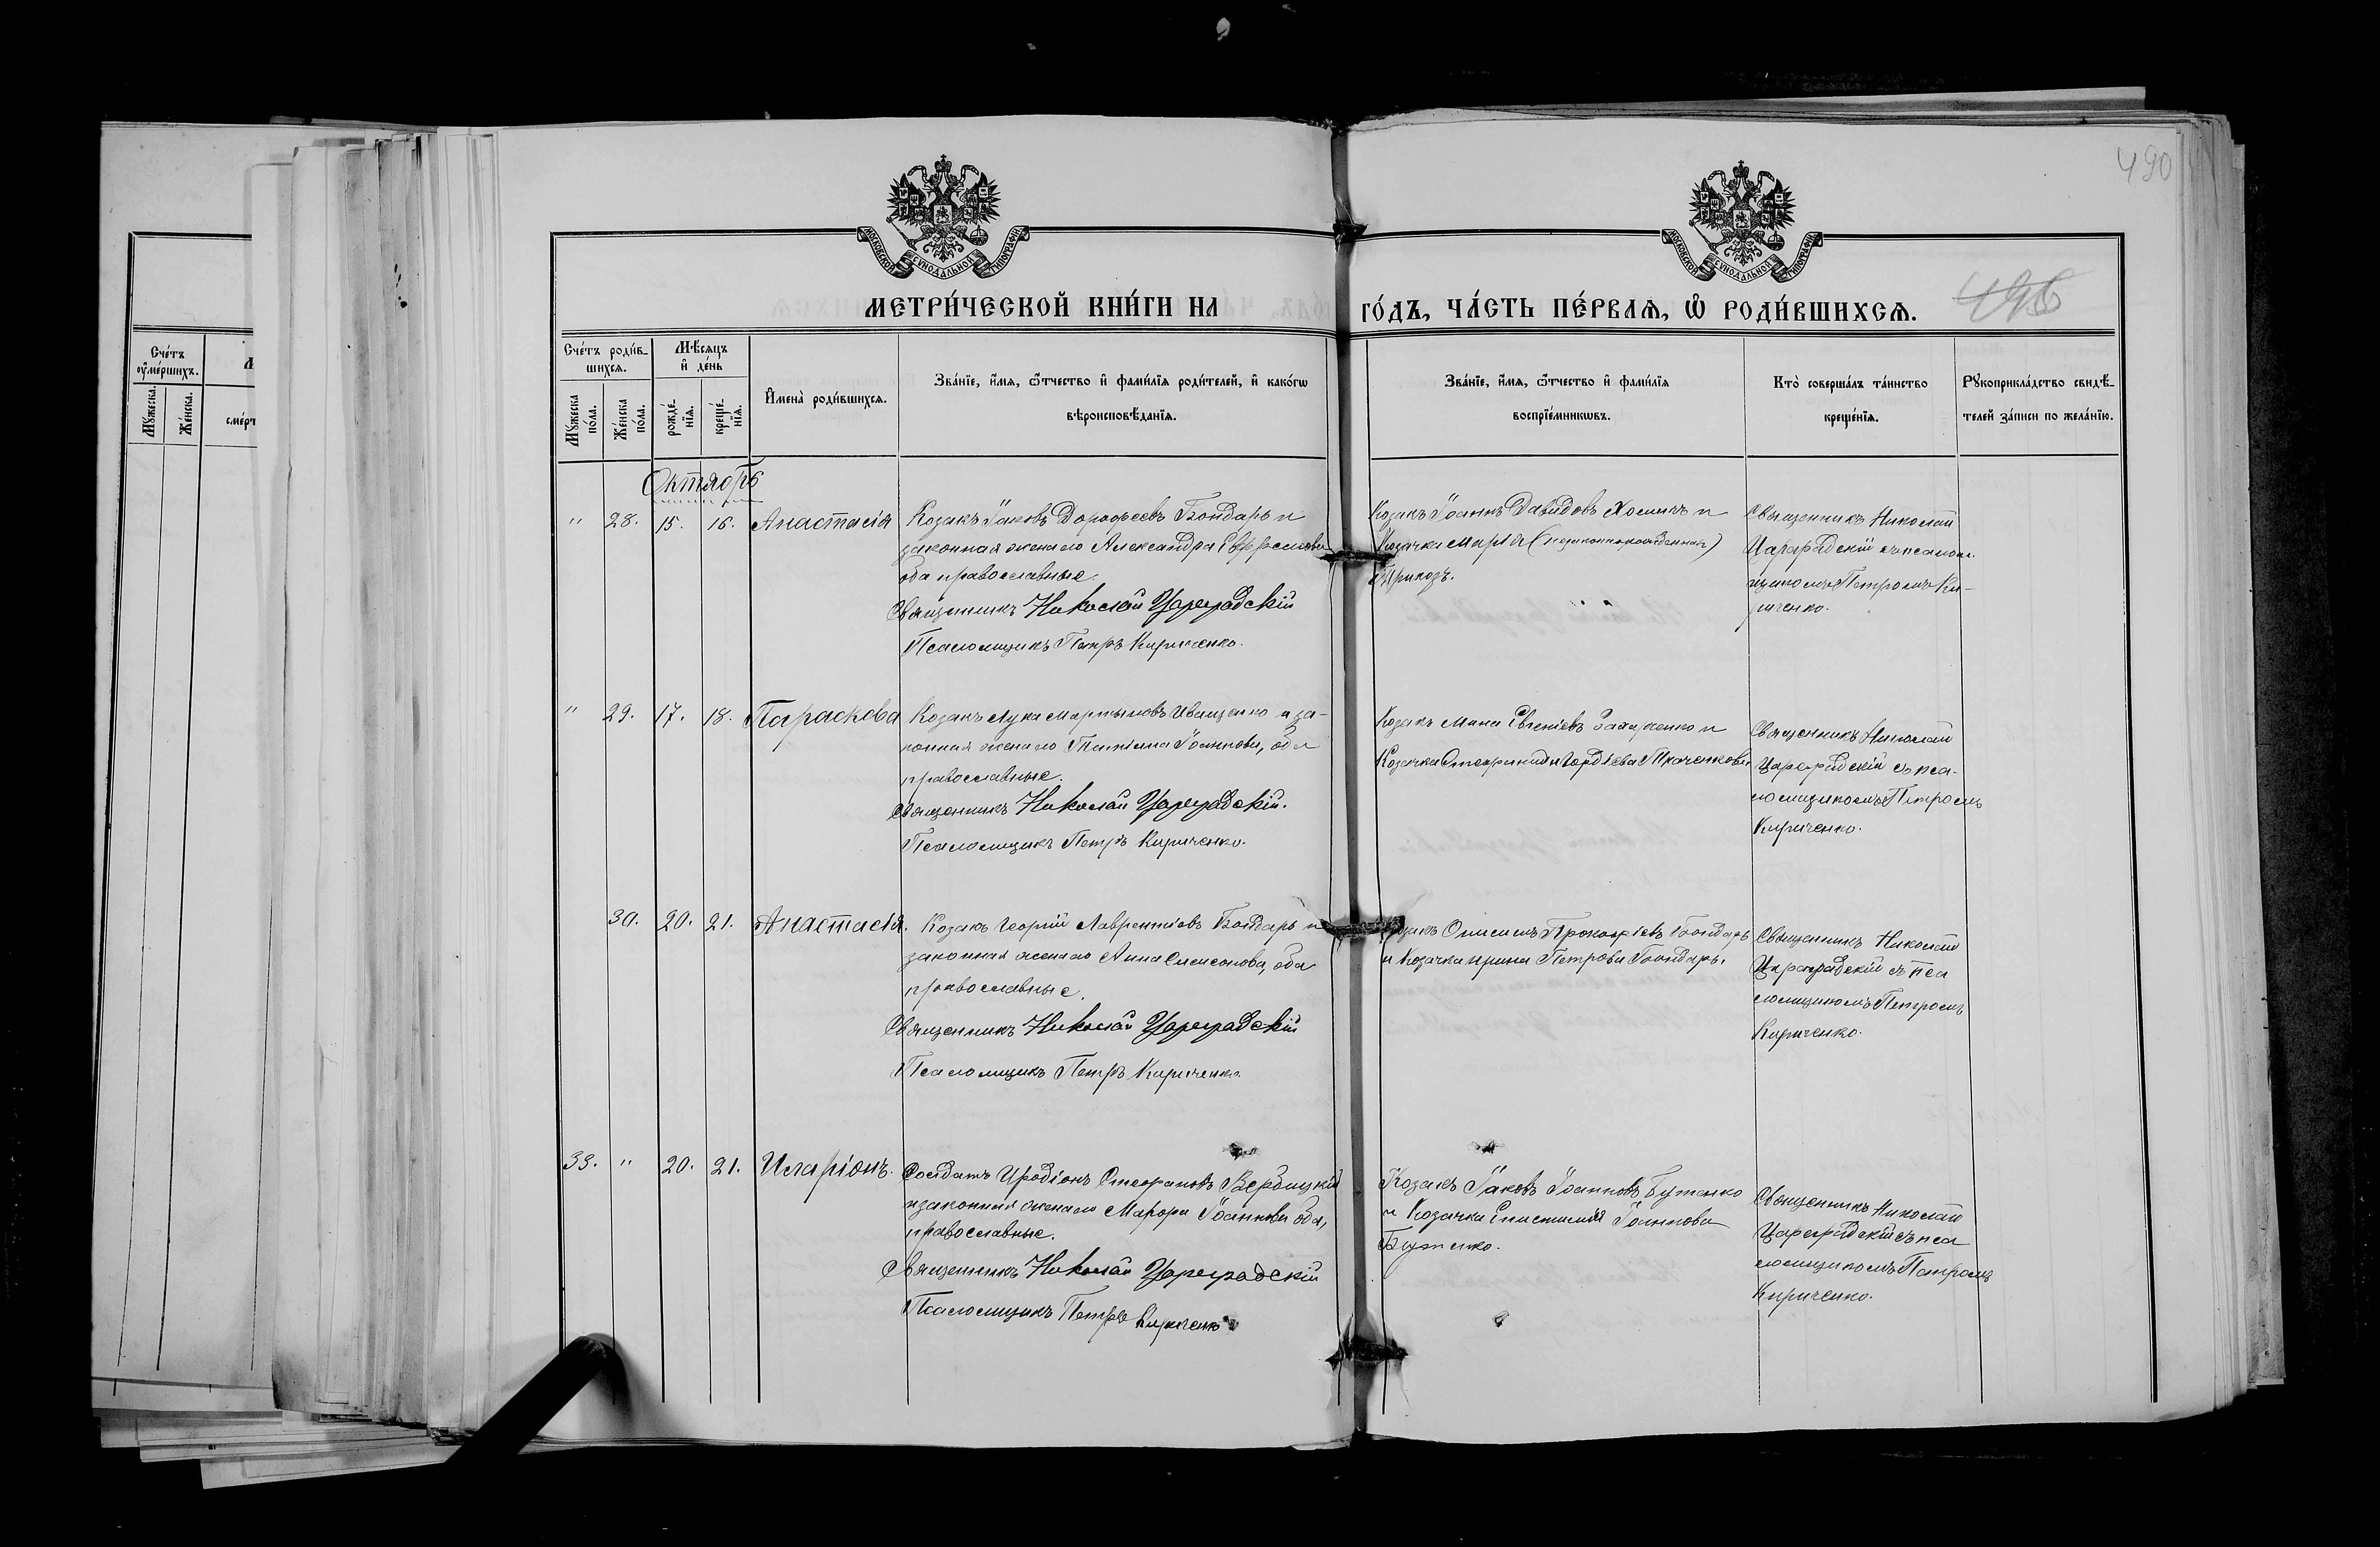 490
МОСКОВСКОЙ СѴНОДАЛЬНОЙ ТИПОГРАФІИ
МОСКОВСКОЙ СѴНОДАЛЬНОЙ ТИПОГРАФІИ
МЕТРИ́ЧЕСКОЙ КНИ́ГИ НА ГО́ДЪ, ЧА́СТЬ ПЕ́РВАѦ, Ѡ РОДИ́ВШИХСѦ.
Сче́тъ ᲂу҆ме́ршихъ.
Мꙋ́жеска.
Же́нска.
Сче́тъ роди́вшихсѧ.
Мꙋ́жеска по́ла.
Же́нска по́ла.
Мѣ́сѧцъ и҆ де́нь
рожде́нїѧ.
креще́нїѧ.
И҆мена̀ роди́вшихсѧ.
Зва́нїе, и҆́мѧ, ѻ҆́тчество и҆ фами́лїѧ роди́телей, и҆ како́гѡ
вѣроисповѣ́данїѧ.
Зва́нїе, и҆́мѧ, ѻ҆́тчество и҆ фами́лїѧ
воспрїе́мникѡвъ.
Кто̀ соверша́лъ та́инство
креще́нїѧ.
Рꙋкоприкла́дство свидѣ́-
телей за́писи по жела́нїю.
Октябрь
" 28. 15. 16. Анастасія
Козакъ Іаковъ Дорофеевъ Бондарь и
законная жена его Александра
оба православные.
Священникъ Николай Цареградскій
Псаломщикъ Петръ Кириченко.
Козакъ Іоаннъ Давидовъ Хоминъ и
Козачка Марѳа (незаконнорожденная)
Священникъ Николай
Цареградскій съ псалом-
щикомъ Петромъ Ки-
риченко.
" 29. 17. 18. Параскева
Козакъ Лука Мартыновъ Иващенко и за-
конная жена его Татіана Іоаннова, оба
православные.
Священникъ Николай Цареградскій.
Псаломщикъ Петръ Кириченко.
Козакъ Мина Евгеніевъ Захарченко и
Козачка Стефанида Гордіева Ткаченкова
Священникъ Николай
Цареградскій съ пса-
ломщикомъ Петромъ
Кириченко.
30. 20. 21. Анастасія.
Козакъ Георгій Лаврентіевъ Бондарь и
законная жена его Анна Симеонова, оба
православные.
Священникъ Николай Цареградскій
Псаломщикъ Петръ Кириченко.
Козакъ Онисимъ Прокофіевъ Бондарь
и Козачка Ирина Петрова Бондарь.
Священникъ Николай
Цареградскій съ пса
ломщикомъ Петромъ
Кириченко.
33. " 20. 21. Иларіонъ.
Солдатъ Иродіонъ Стефановъ Вербицкій
и законная жена его Марфа Іоаннова оба,
православные.
Священникъ Николай Цареградскій
Псаломщикъ Петръ Кириченко
Козакъ Іаковъ Іоанновъ Бутенко
и Козачка Епистимія Іоаннова
Бутенко.
Священникъ Николай
Цареградскій съ пса
ломщикомъ Петромъ
Кириченко.